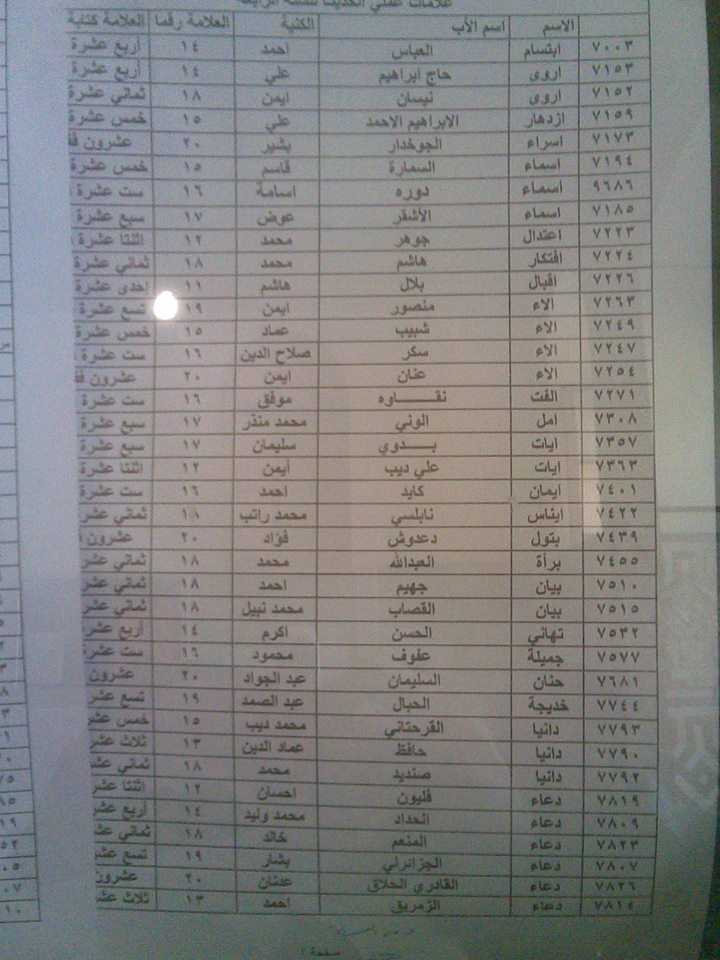 علامات عملي الحديث للسنة الرابعة
الاسم اسم الأب الكنية العلامة رقما العلامة كتابة
٧٠٠٣ ابتسام العباس احمد ١٤ أربع عشرة
٧١٥٣ اروى حاج ابراهيم علي ١٤ أربع عشرة
٧١٥٢ اروى نيسان ايمن ١٨ ثماني عشرة
٧١٥٩ ازدهار الابراهيم الاحمد علي ١٥ خمس عشرة
٧١٧٣ اسراء الجوخدار بشير ٢٠ عشرون فقط
٧١٩٤ اسماء السمارة قاسم ١٥ خمس عشرة
٩٦٨٦ اسماء دوره اسامة ١٦ ست عشرة
٧١٨٥ اسماء الأشقر عوض ١٧ سبع عشرة
٧٢٢٣ اعتدال جوهر محمد ١٢ اثنتا عشرة
٧٢٢٤ افتكار هاشم محمد ١٨ ثماني عشرة
٧٢٢٦ اقبال بلال هاشم ١١ إحدى عشرة
٧٢٦٣ الاء منصور ايمن ١٩ تسع عشرة
٧٢٤٩ الاء شبيب عماد ١٥ خمس عشرة
٧٢٤٧ الاء سكر صلاح الدين ١٦ ست عشرة
٧٢٥٤ الاء عنان ايمن ٢٠ عشرون فقط
٧٢٧١ الفت نقـــــاوه موفق ١٦ ست عشرة
٧٣٠٨ امل الوني محمد منذر ١٧ سبع عشرة
٧٣٥٧ ايات بـــدوي سليمان ١٧ سبع عشرة
٧٣٦٣ ايات علي ديب أيمن ١٢ اثنتا عشرة
٧٤٠١ ايمان كايد احمد ١٦ ست عشرة
٧٤٢٢ ايناس نابلسي محمد راتب ١٨ ثماني عشر
٧٤٣٩ بتول دعدوش فؤاد ٢٠ عشرون
٧٤٥٥ برأة العبدالله محمد ١٨ ثماني عشر
٧٥١٠ بيان جهيم احمد ١٨ ثماني عشر
٧٥١٥ بيان القصاب محمد نبيل ١٨ ثماني عشر
٧٥٣٢ تهاني الحسن اكرم ١٤ أربع عشر
٧٥٧٧ جميلة عفوف محمود ١٦ ست عشرة
٧٦٨١ حنان السليمان عبد الجواد ٢٠ عشرون
٧٧٤٤ خديجة الحبال عبد الصمد ١٩ تسع عشر
٧٧٩٣ دانيا القرحتاني محمد ديب ١٥ خمس عشر
٧٧٩٠ دانيا حافظ عماد الدين ١٣ ثلاث عشر
٧٧٩٢ دانيا صنديد محمد ١٨ ثماني عش
٧٨١٩ دعاء فليون احسان ١٢ اثنتا عش
٧٨٠٩ دعاء الحداد محمد وليد ١٤ أربع عشر
٧٨٢٣ دعاء المنعم خالد ١٨ ثماني عش
٧٨٠٧ دعاء الجزائرلي بشار ١٩ تسع عشر
٧٨٢٦ دعاء القادري الحلاق عدنان ٢٠ عشرون
٧٨١٤ دعاء الزمريق احمد ١٣ ثلاث عش
صفحة ١